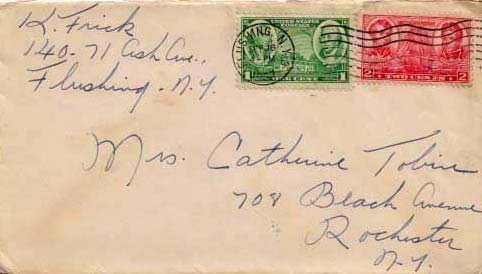 K. Frick
140-71 Ash Ave.,
Flushing. N.Y.
FLUSHING, N.Y.
UNITED STATES
POSTAGE
1 CENT 1
2 TWO CENTS 2
Mrs. Catherine Tobin
708 Beach Avenue
Rochester
N.Y.